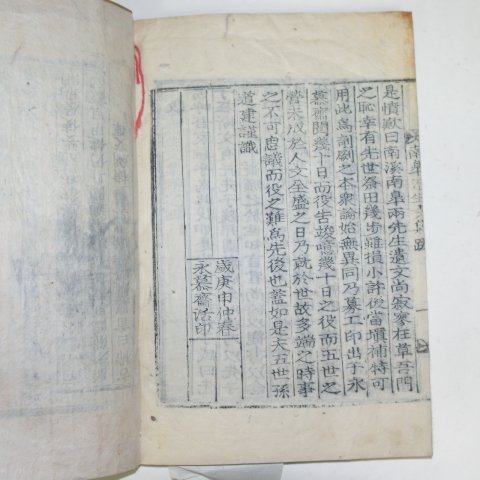 是憤歎曰南溪南皐兩先生遺文尚寂寥在草吾門
之恥幸有先世祭田幾步雖損小許後當塡補特可
用此爲剞劂之本衆論始無異同乃募工印出于永
慕齋閱幾十日而役告竣噫幾十日之役而五世之
營未成於人文全盛之日乃就於世故多端之時事
之不可慮議而役之難爲先後也蓋如是夫五世孫
道建謹識
歲庚申仲春
永慕齋活印